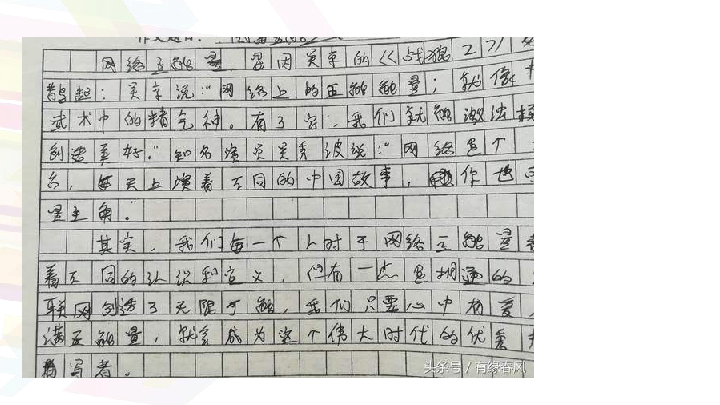 网络正能量 是因吴京的《战狼2》
吴京说:"网络上的正能量;就像
武术中的精气神。有了它,我们就能激浊扬
创造美好。"知名演员吴秀波说:"网络是个
台,每天上演着不同的中国故事,你也
是主角。
其实,我们每一个人对于网络正能量
着不同的认识和定义,但有一点是相通的
联网创造了无限可能,我们只要心中有爱
满正能量,就会成为这个伟大时代的优秀
书写者。
头条号/有缘春风